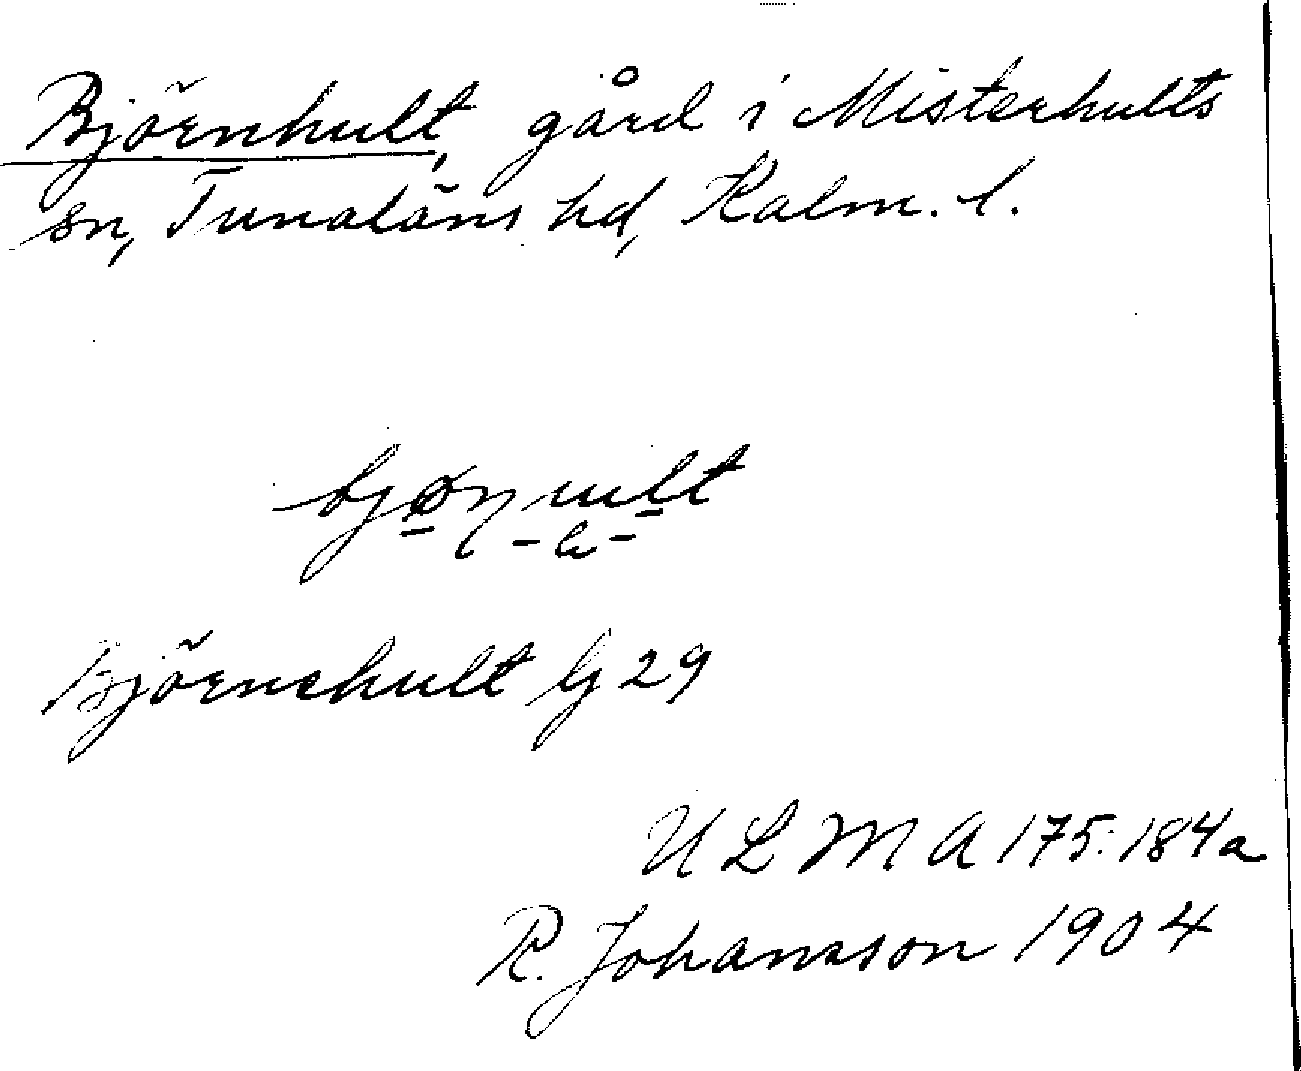 Björnhult, gård i Misterhults
sn, Tunaläns hd, Kalm. l.
bjøṇult
- h -
Björnehult G 29
ULMA 175:184a
R. Johansson 1904